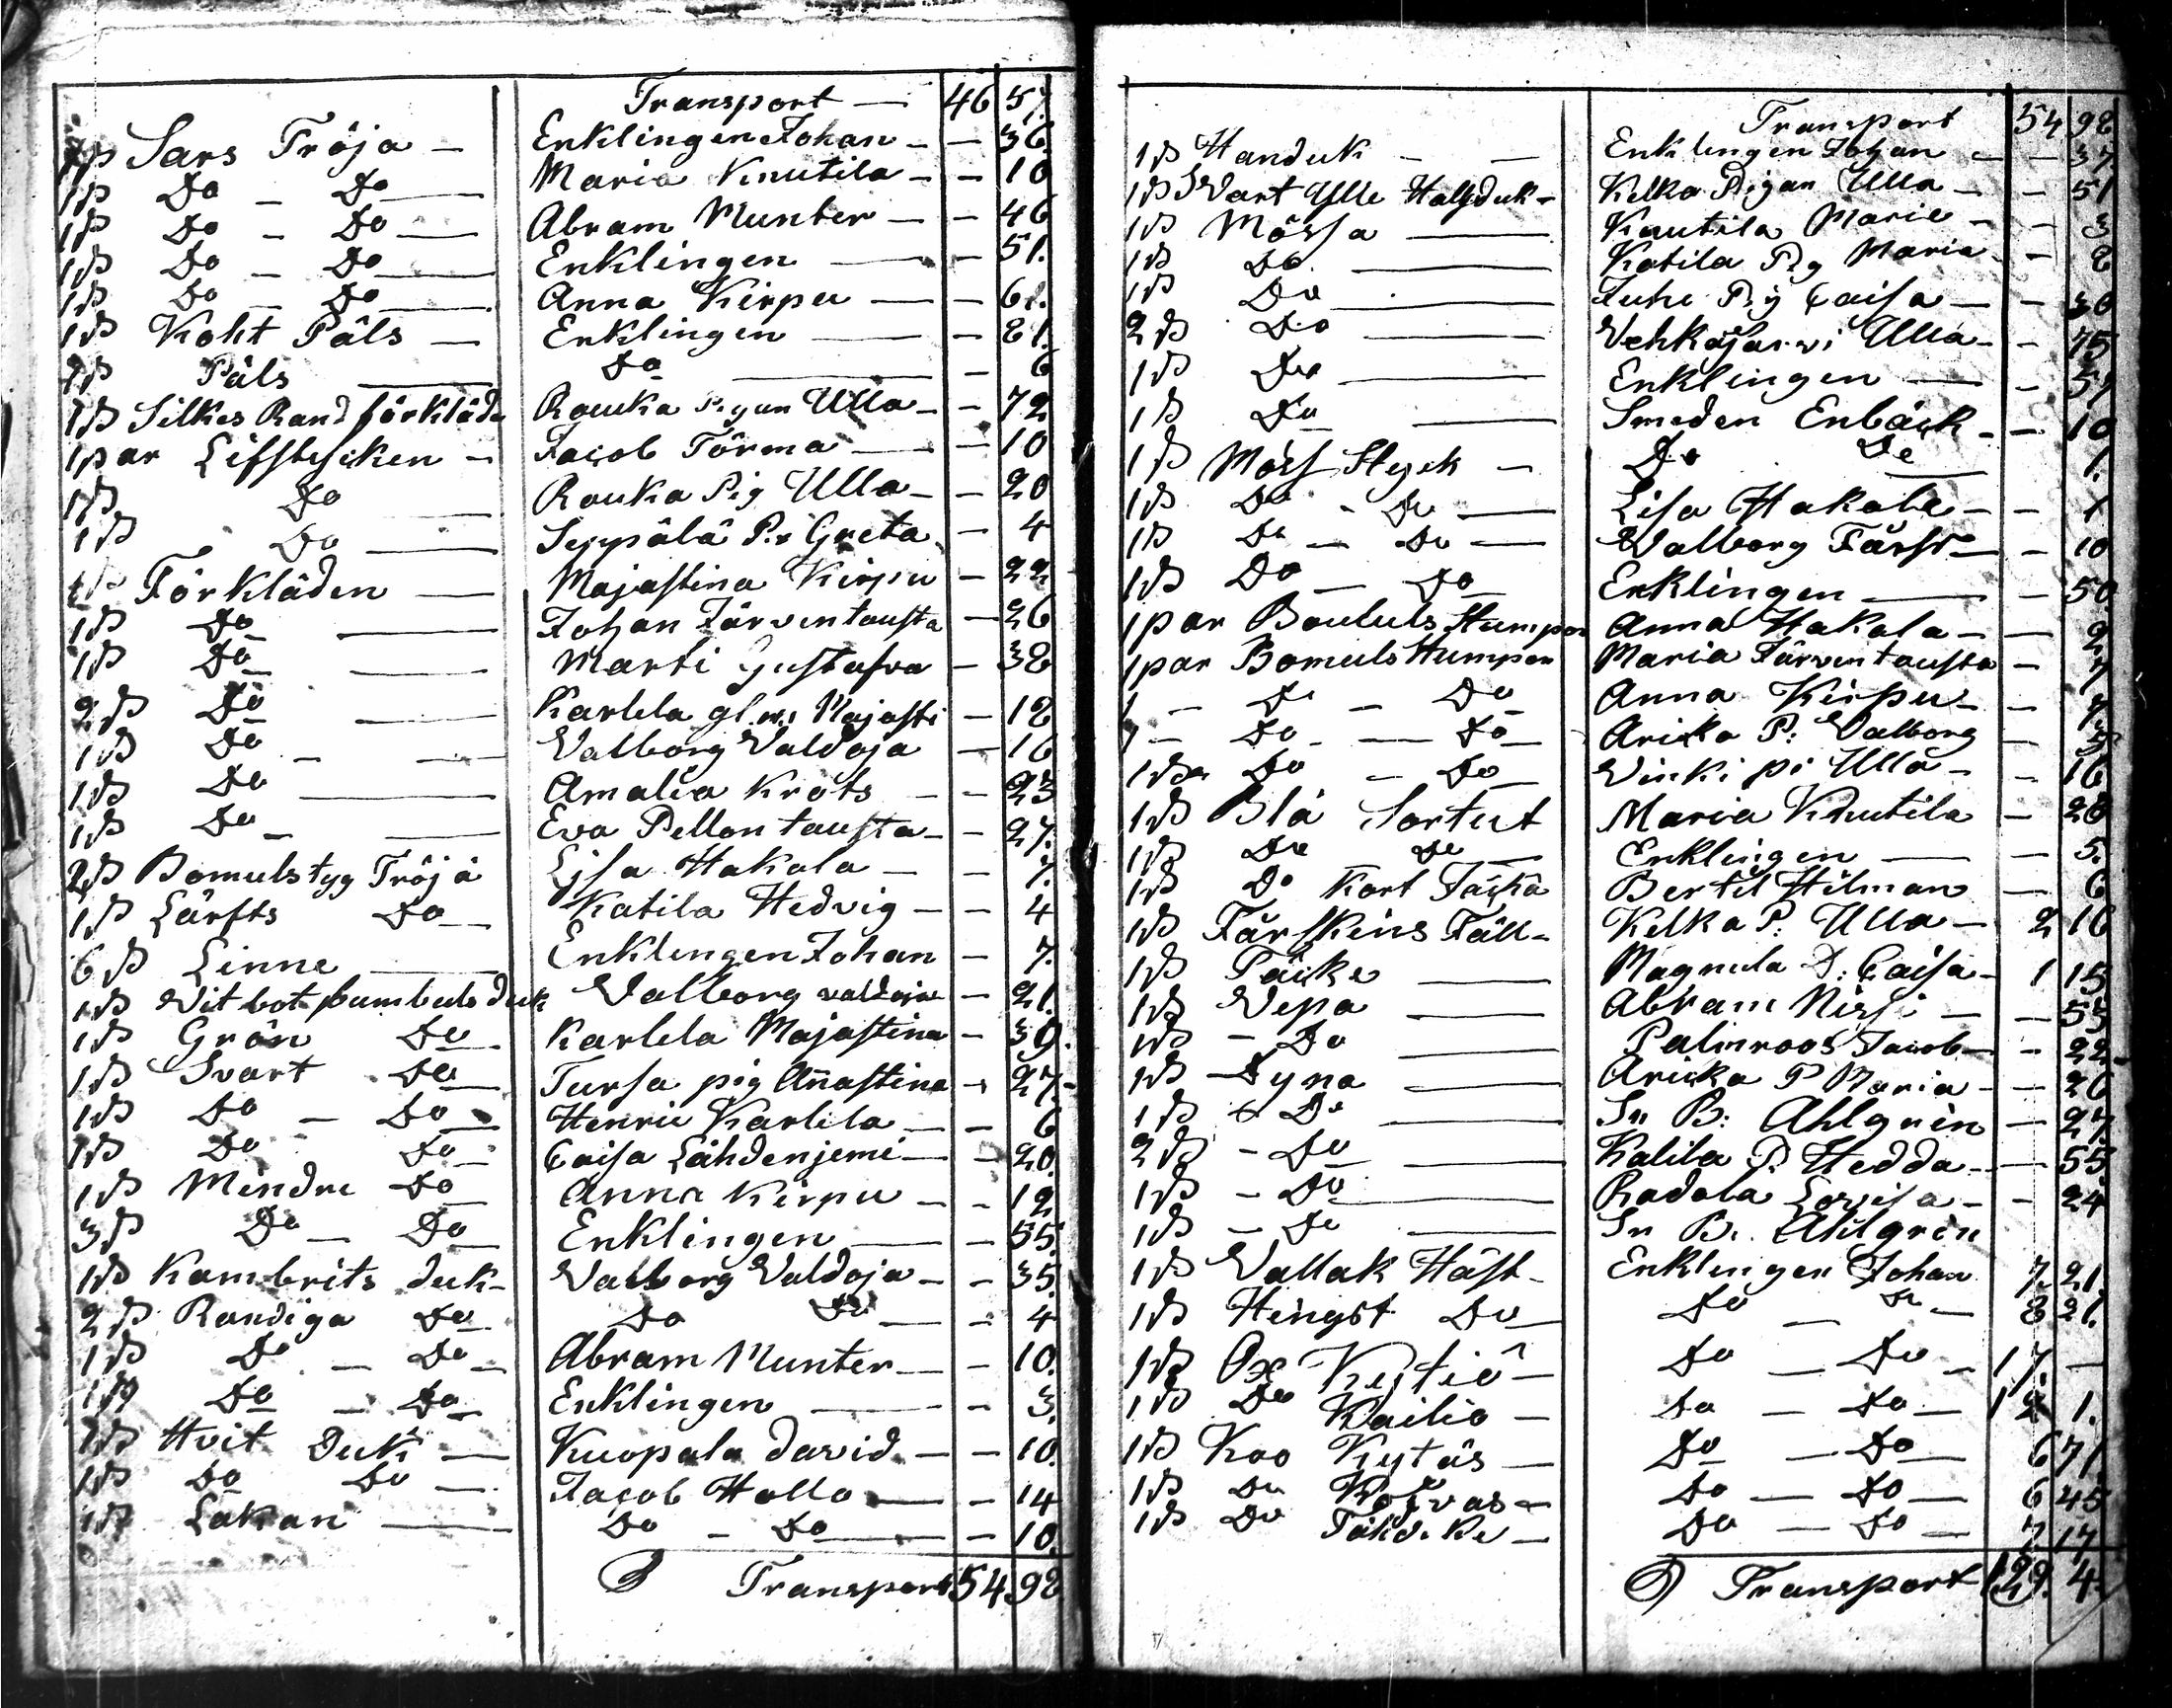 Transport — 46 57.
1 Sars Tröja — Enklingen Johan — 36
1 Do — Do — Maria Knutila — 10
1 Do — Do — Abram Munter — 46
1 Do — Do — Enklingen — 51.
1 Do — Do — Anna Kirpu — 61.
1 Koht Päls — Enklingen — 81.
Päls — Do — 6
1 Silkes Rand förkläde Rouka Pigan Ulla — 72
1 par Lifstycken — Jacob Törma — 10
1 Do — Rouka Pig Ulla — 20
1 Do — Seppälä P. Greta — 4
Förkläden — Majastina Kirpu — 22
1 Do — Johan Järventausta — 26
1 Do — Marti Gustafva — 38
2 Do — Karlela Majasti — 18
1 Do — Valborg Valdoja — 16
1 Do — Amalia Krots — 23
1 Do — Eva Pellontausta — 27.
2 Bomulstyg Tröja Lisa Hakala — 7.
1 Lärfts Do — Katila Hedvig — 4
6 Linne — Enklingen Johan — 7.
1 Vit bumbuls duk Valborg valdoja — 21.
1 Grön Do — Karlela Majastina — 39.
1 Svart Do — Tursa pig Annastina — 27.
1 Do — Do — Henric Karlila — 6
1 Do Do — Caisa Lähdenjemi — 20.
1 Mindre Do — Anna Kirpu — 12
3 Do — Do — Enklingen — 55.
1 Kambrits duk — Valborg Valdoja — 35.
2 Randiga Do — Do Do — 4
1 Do — Do — Abram Munter — 10.
1 Do — Do — Enklingen — 3.
1 Hvit Duk — Kuopala david — 10.
1 Do Do — Jacob Hollo — 14
1 Lakan — Do — Do — 10.
Transport 54 98
Transport 54 98
1 Handuk — Enklingen Johan — 37
1 Svart Ylle Halsduk — Kelka Pigan Ulla — 51
1 Mössa — Knutila Marie — 3
1 Do — Katila Pig Maria — 8
1 Do — Juhe Pig Caisa — 30
2 Do — Vehkajarvi Ulla — 75
1 Do — Enklingen — 51
1 Do — Smeden Enbäck — 10
1 Möss Styck — Do Do 1.
1 Do — Do — Lisa Hakala — 1
1 Do — Do — Valborg Färst — 10
1 Do — Do — Enklingen — 50.
1 par Boululs Stumpor Anna Hakala — 2
1 par Bomuls Stumpor Maria Järventausta — 7
1 — Do — Do Anna Kirpu — 7.
1 — Do — Do — Aricka P: Valborg — 5
1 Do — Do — Vinki pi Ulla — 16
1 Blå Sortut Maria Knutila — 28
1 Do Do — Enklingen — 5.
1 Do Kort Täcka Bertil Hilman — 6
1 Fårskins Fäll — Kelka P. Ulla — 2 16
1 Täcke — Magnula D: Caisa — 1 15
1 Vepa — Abram Nissi — 53
1 — Do — Palmroos Jacob — 22
1 — Dyna — Aricka P Maria — 26
1 Do — Sn B: Ahlgrén — 27.
2 — Do — Katila P. Hedda — 55
1 — Do — Radala Lovisa — 24
1 — Do — Sn B. Ahlgren
1 Vallak Häst — Enklingen Johan 7. 21.
1 Hingst Do — Do — Do — 8 21.
1 Ox Kyfiö — Do — Do — 17. —
1 Do Railio — Do — Do — 12 1.
1 Koo Kytäs — Do — Do — 6 71.
1 Do — Do — Do — 6 45
1 Do — Do — Do — 7 17
Transport 129. 4.